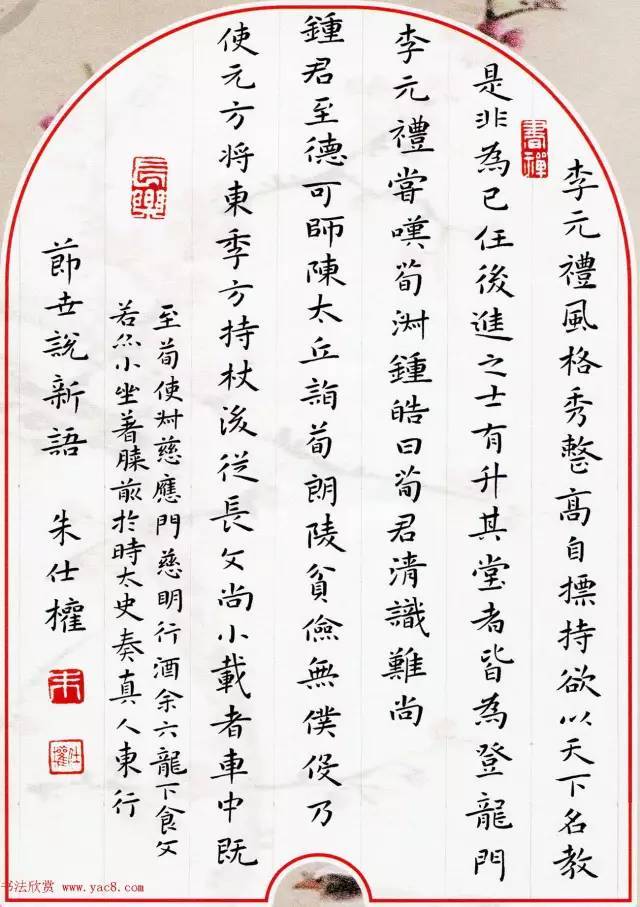 書禪
李元禮風格秀整高自摽持欲以天下名教
是非為己任後進之士有升其堂者皆為登龍門
李元禮嘗嘆荀淑鍾皓曰荀君清識難尚
鍾君至德可師陳太丘詣荀朗陵貧儉無僕役乃
使元方将東季方持杖後從長文尚小載者車中既
至荀使叔慈應門慈明行酒余六龍下食文
若亦小坐著膝前於時太史奏真人東行
長樂
節世說新語 朱仕權
朱
仕權
书法欣赏 www.yac8.com